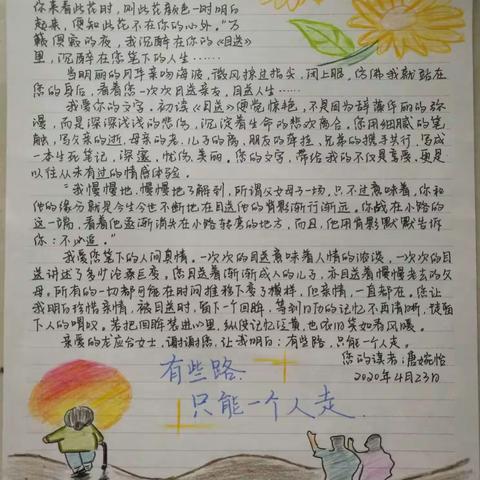 你来看此花时，则此花颜色一时明白
起来，便知此花不在你的心外。”万
籁俱寂的夜，我沉醉在你的《目送》
里，沉醉在您笔下的人生……
当明丽的月华亲吻海波，微风掠过指尖，闭上眼，仿佛我就站在
您的身后，看着您一次次目送亲友，目送人生……
我爱你的文字。初读《目送》便觉惊艳，不是因为辞藻华丽的弥
漫，而是深深浅浅的悲伤，沉淀着生命的悲欢离合。您用细腻的笔
触，写父亲的逝，母亲的老，儿子的离，朋友的牵挂，兄弟的携手共行，写成
一本生死笔记，深邃，忧伤，美丽。您的文字，带给我的不仅是享受，更是
以往从未有过的情感体验。
“我慢慢地，慢慢地了解到，所谓父女母子一场，只不过意味着，你和
他的缘分就是今生今世不断地在目送他的背影渐行渐远。你站在小路的
这一端，看着他逐渐消失在小路转弯的地方，而且，他用背影默默告诉
你：不必追。”
我爱您笔下的人间真情。一次次的目送意味着人情的浓淡，一次次的目
送讲述了多少沧桑巨变。您目送着渐渐成人的儿子，亦目送着慢慢老去的父
母。所有的一切都可能在时间推移下变了模样，但亲情，一直都在。您让
我明白珍惜亲情，被目送时，留下一个回眸，等到旧历的记忆不再清晰，徒留
下人的喟叹。若把回眸装进心里，纵使记忆泛黄，也依旧笑如春风暖。
亲爱的龙应台女士，谢谢您，让我明白：有些路，只能一个人走。
您的读者：唐婉怡
2020年4月23日
有些路
只能一个人走